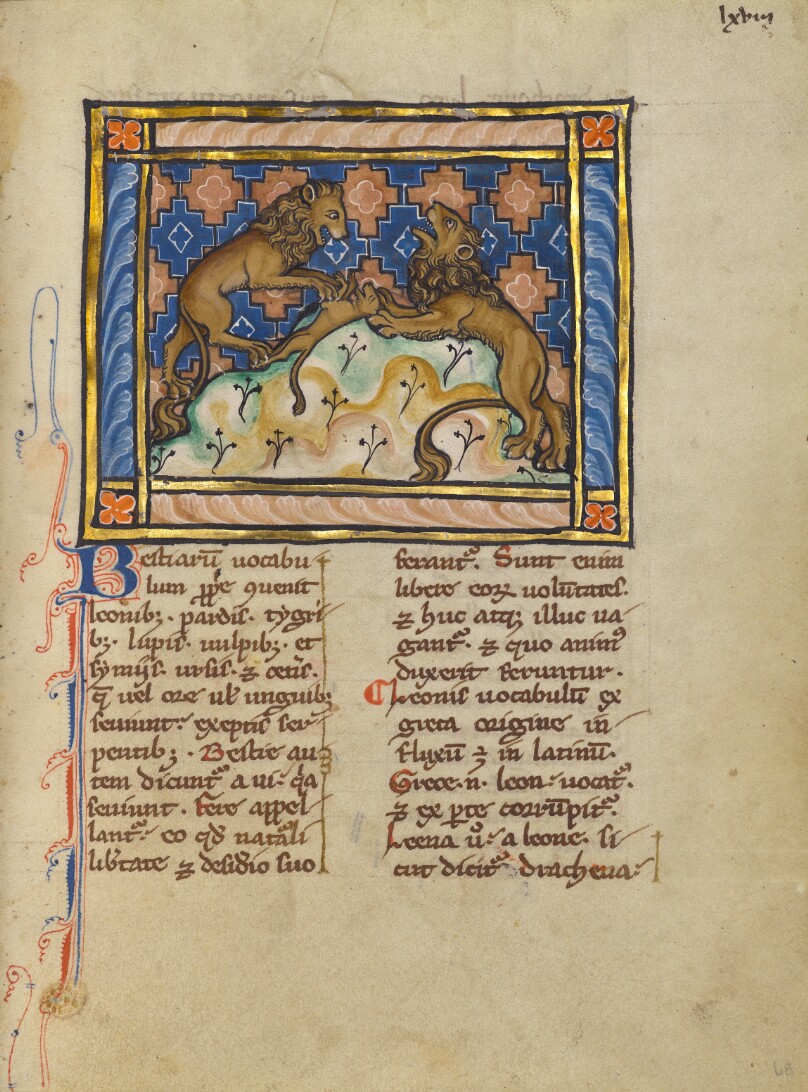 lxviii
Bestiarū uocabu
lum ꝓp̄e ꝯuenit
leonibꝫ · pardis · tygri
bꝫ · lupis · uulpibꝫ · et
symijs · ursis · ⁊ ceſis ·
q̄ uel ore ul̄ unguibꝫ
seuiunt · exeptis ser
pentibꝫ · Bestie au
tem dicunt᷑ a ui · q̄a
seuiunt · Fere appel
lant᷑ · eo qd̄ natāli
lib̄tate ⁊ desidio suo
ferant᷑ · Sunt enim
libere eoꝝ uolūtates ·
⁊ huc atqꝫ illuc ua
gant᷑ · ⁊ quo animꝰ
duxerit feruntur ·
Leonis uocabulū ex
greca origine in
flexū ⁊ in latinū ·
Grece · n · leon · uocat᷑ ·
⁊ ex ꝑte corrūpit᷑ ·
Leena ů · a leone · si
cut dicit᷑ drachena ·
68